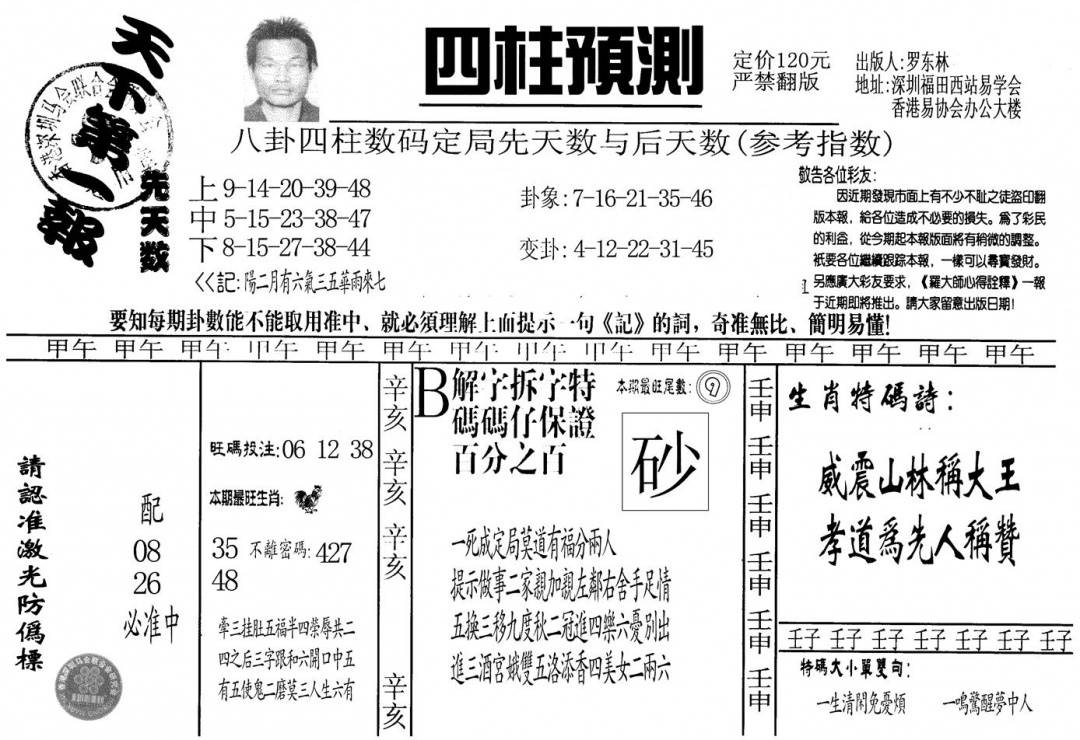 天下第一報
先天数
四柱預測
定价120元
严禁翻版
出版人:罗东林
地址:深圳福田西站易学会
香港易协会办公大楼
八卦四柱数码定局先天数与后天数(参考指数)
上9-14-20-39-48
中5-15-23-38-47
下8-15-27-38-44
<<記:陽二月有六氣三五華雨來七
卦象:7-16-21-35-46
变卦:4-12-22-31-45
敬告各位彩友:
因近期發現市面上有不少不耻之徒盜印翻
版本報,給各位造成不必要的損失。爲了彩民
的利益,從今期起本報版面將有稍微的調整。
衹要各位繼續跟踪本報,一樣可以尋寶發財。
另應廣大彩友要求,《羅大師心得詮釋》一報
于近期即將推出。請大家留意出版日期!
要知每期卦數能不能取用准中、就必須理解上面提示一句《記》的詞,奇准無比、簡明易懂!
甲午 甲午 甲午 甲午 甲午 甲午 甲午 甲午 甲午 甲午 甲午 甲午 甲午 甲午 甲午
請認准激光防僞標
配
08
26
必准中
旺碼投注:06 12 38
本期最旺生肖:
35 不離密碼:427
48
牽三挂肚五福半四榮辱共二
四之后三字跟和六開口中五
有五使鬼二磨莫三人生六有
辛亥
辛亥
辛亥
辛亥
B解字拆字特
碼碼仔保證
百分之百
本期最旺尾數:9
砂
一死成定局莫道有福分兩人
提示做事二家親加親左鄰右舍手足情
五換三移九度秋二冠進四樂六憂別出
進三酒宮娥雙五洛添香四美女二兩六
壬申
壬申
壬申
壬申
壬申
壬申
生肖特碼詩:
威震山林稱大王
孝道爲先人稱贊
壬子 壬子 壬子 壬子 壬子 壬子 壬子
特碼大小單雙句:
一生清閑免憂煩 一鳴驚醒夢中人